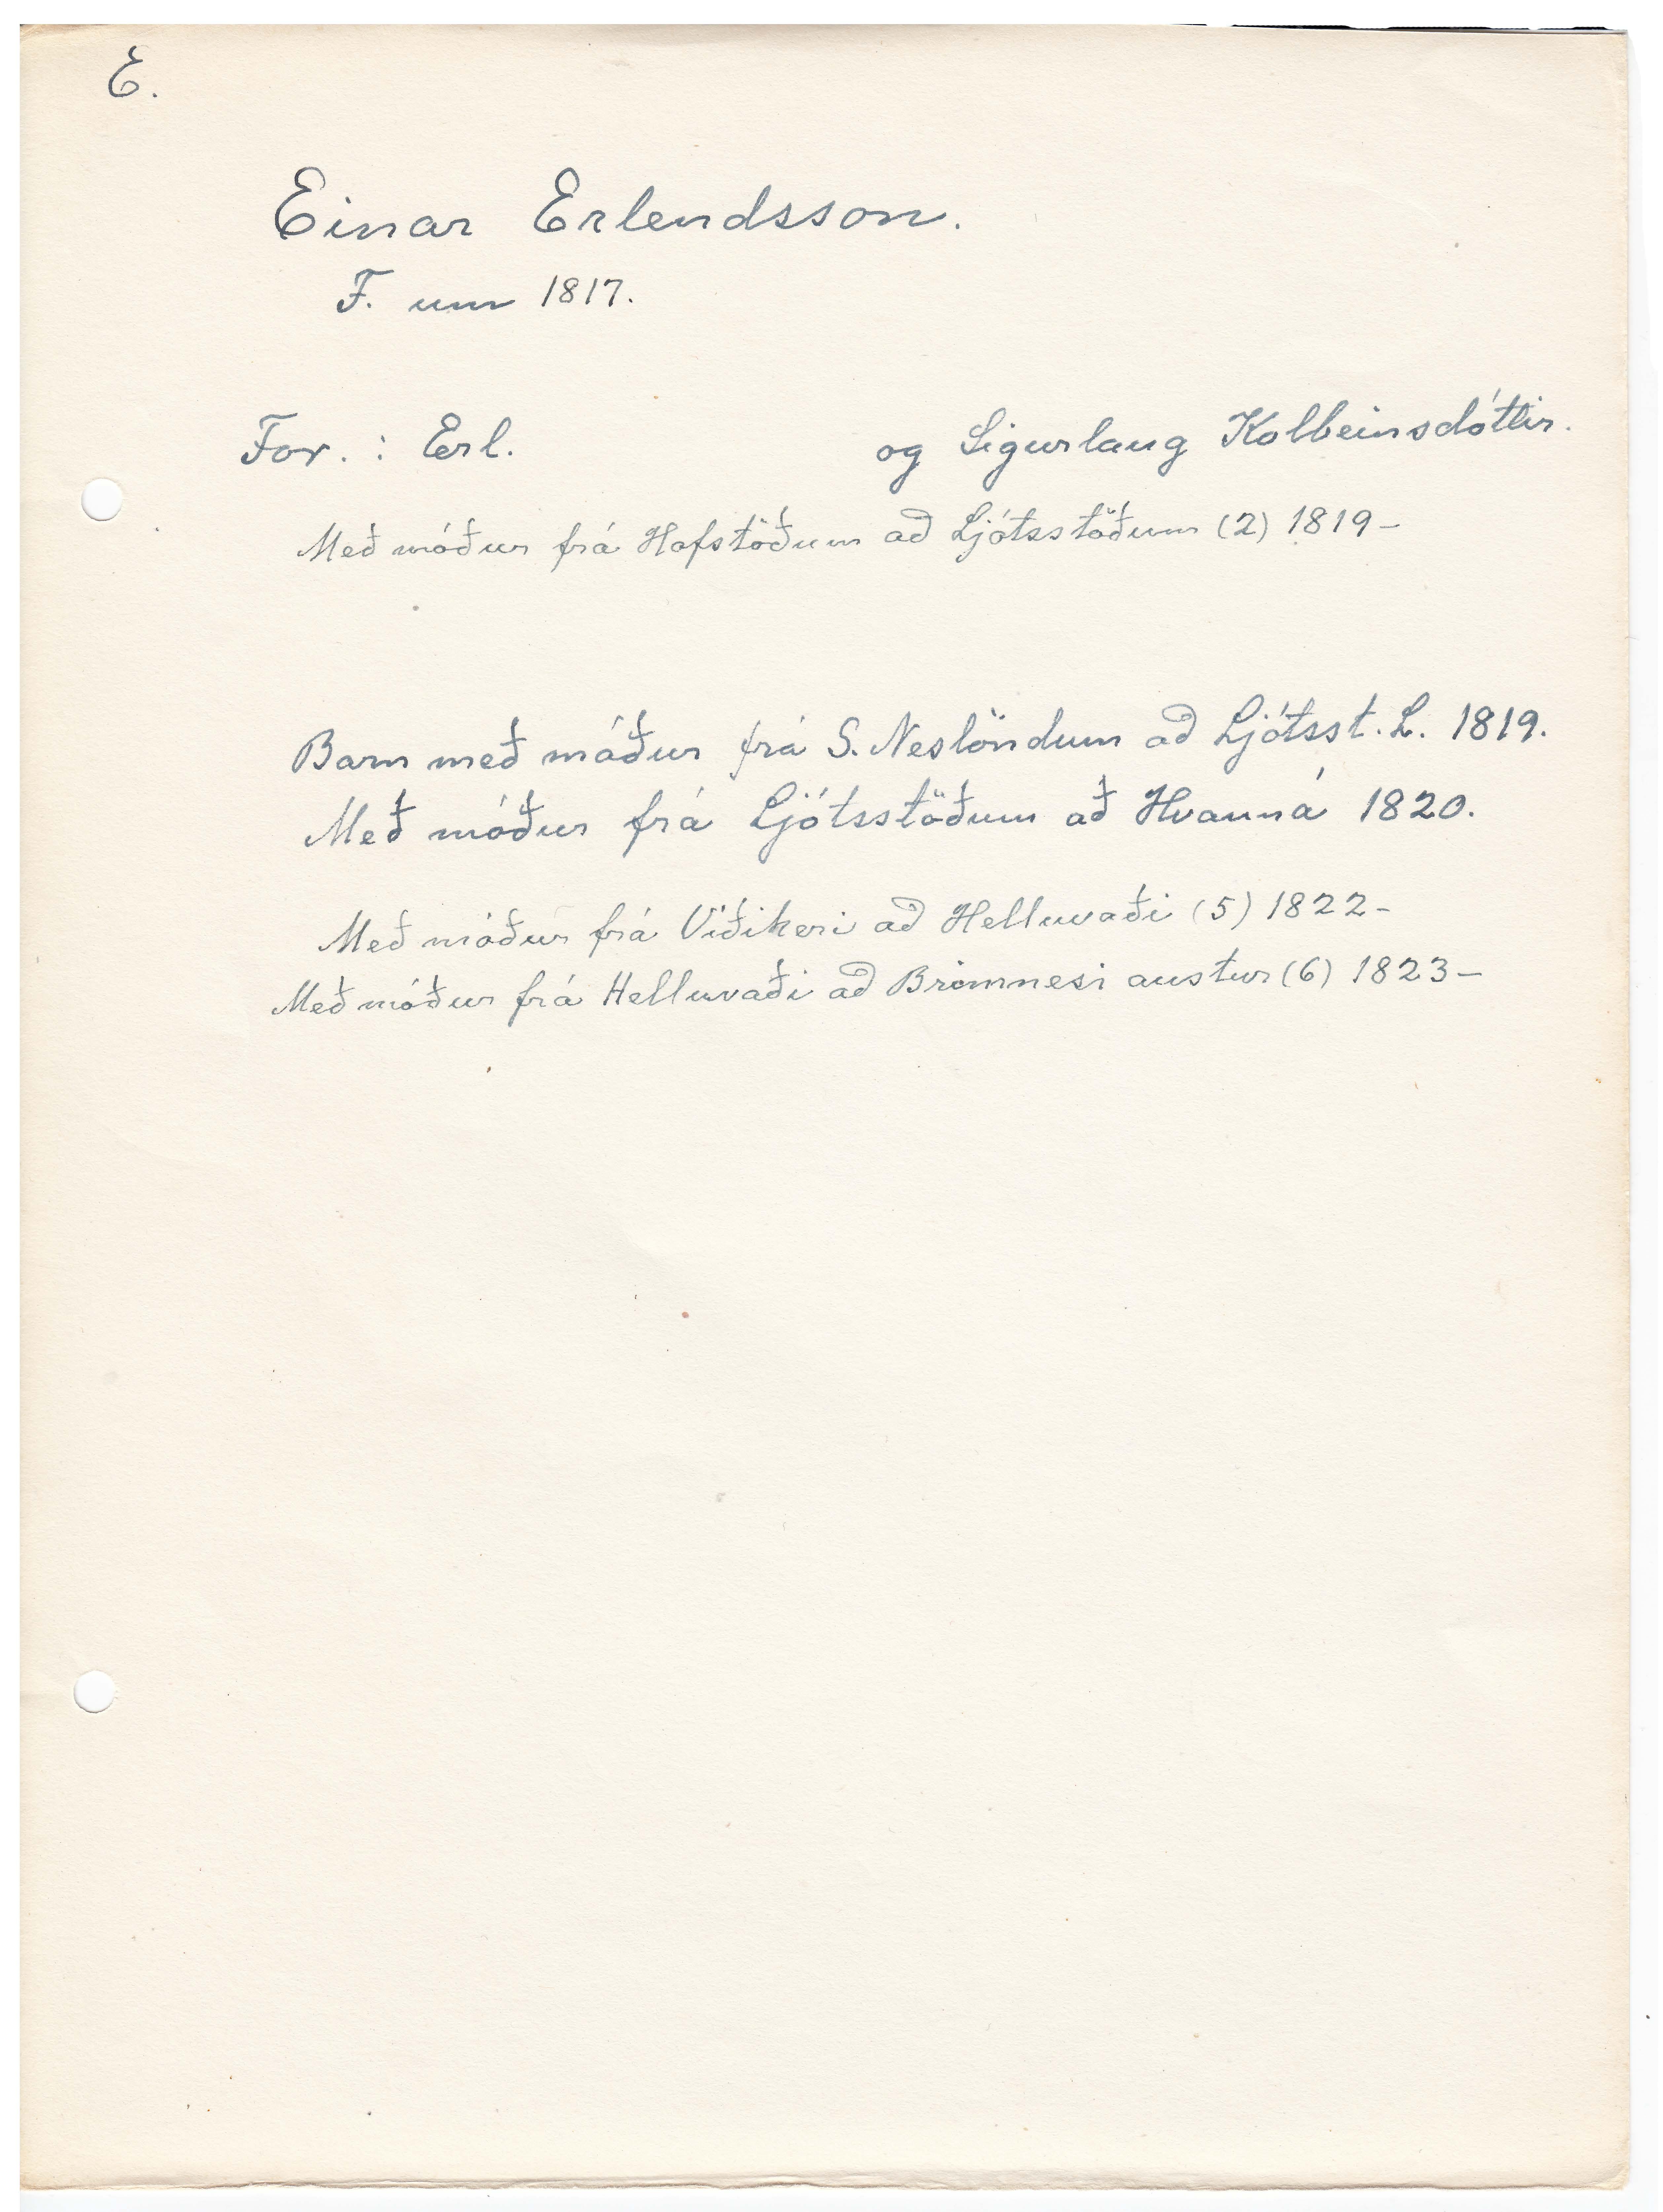 E.
Einar Erlendsson.
F. um 1817.
For. : Erl. og Sigurlaug Kolbeinsdóttir.
Með móður frá Hofstöðum að Ljótsstöðum (2) 1819-
Barn með móður frá S. Neslöndum að Ljótsst. L. 1819.
Með móður frá Ljótsstöðum að Hvanná 1820.
Með móður frá Víðikeri að Helluvaði (5) 1822-
Með móður frá Helluvaði að Brimnesi austur (6) 1823-